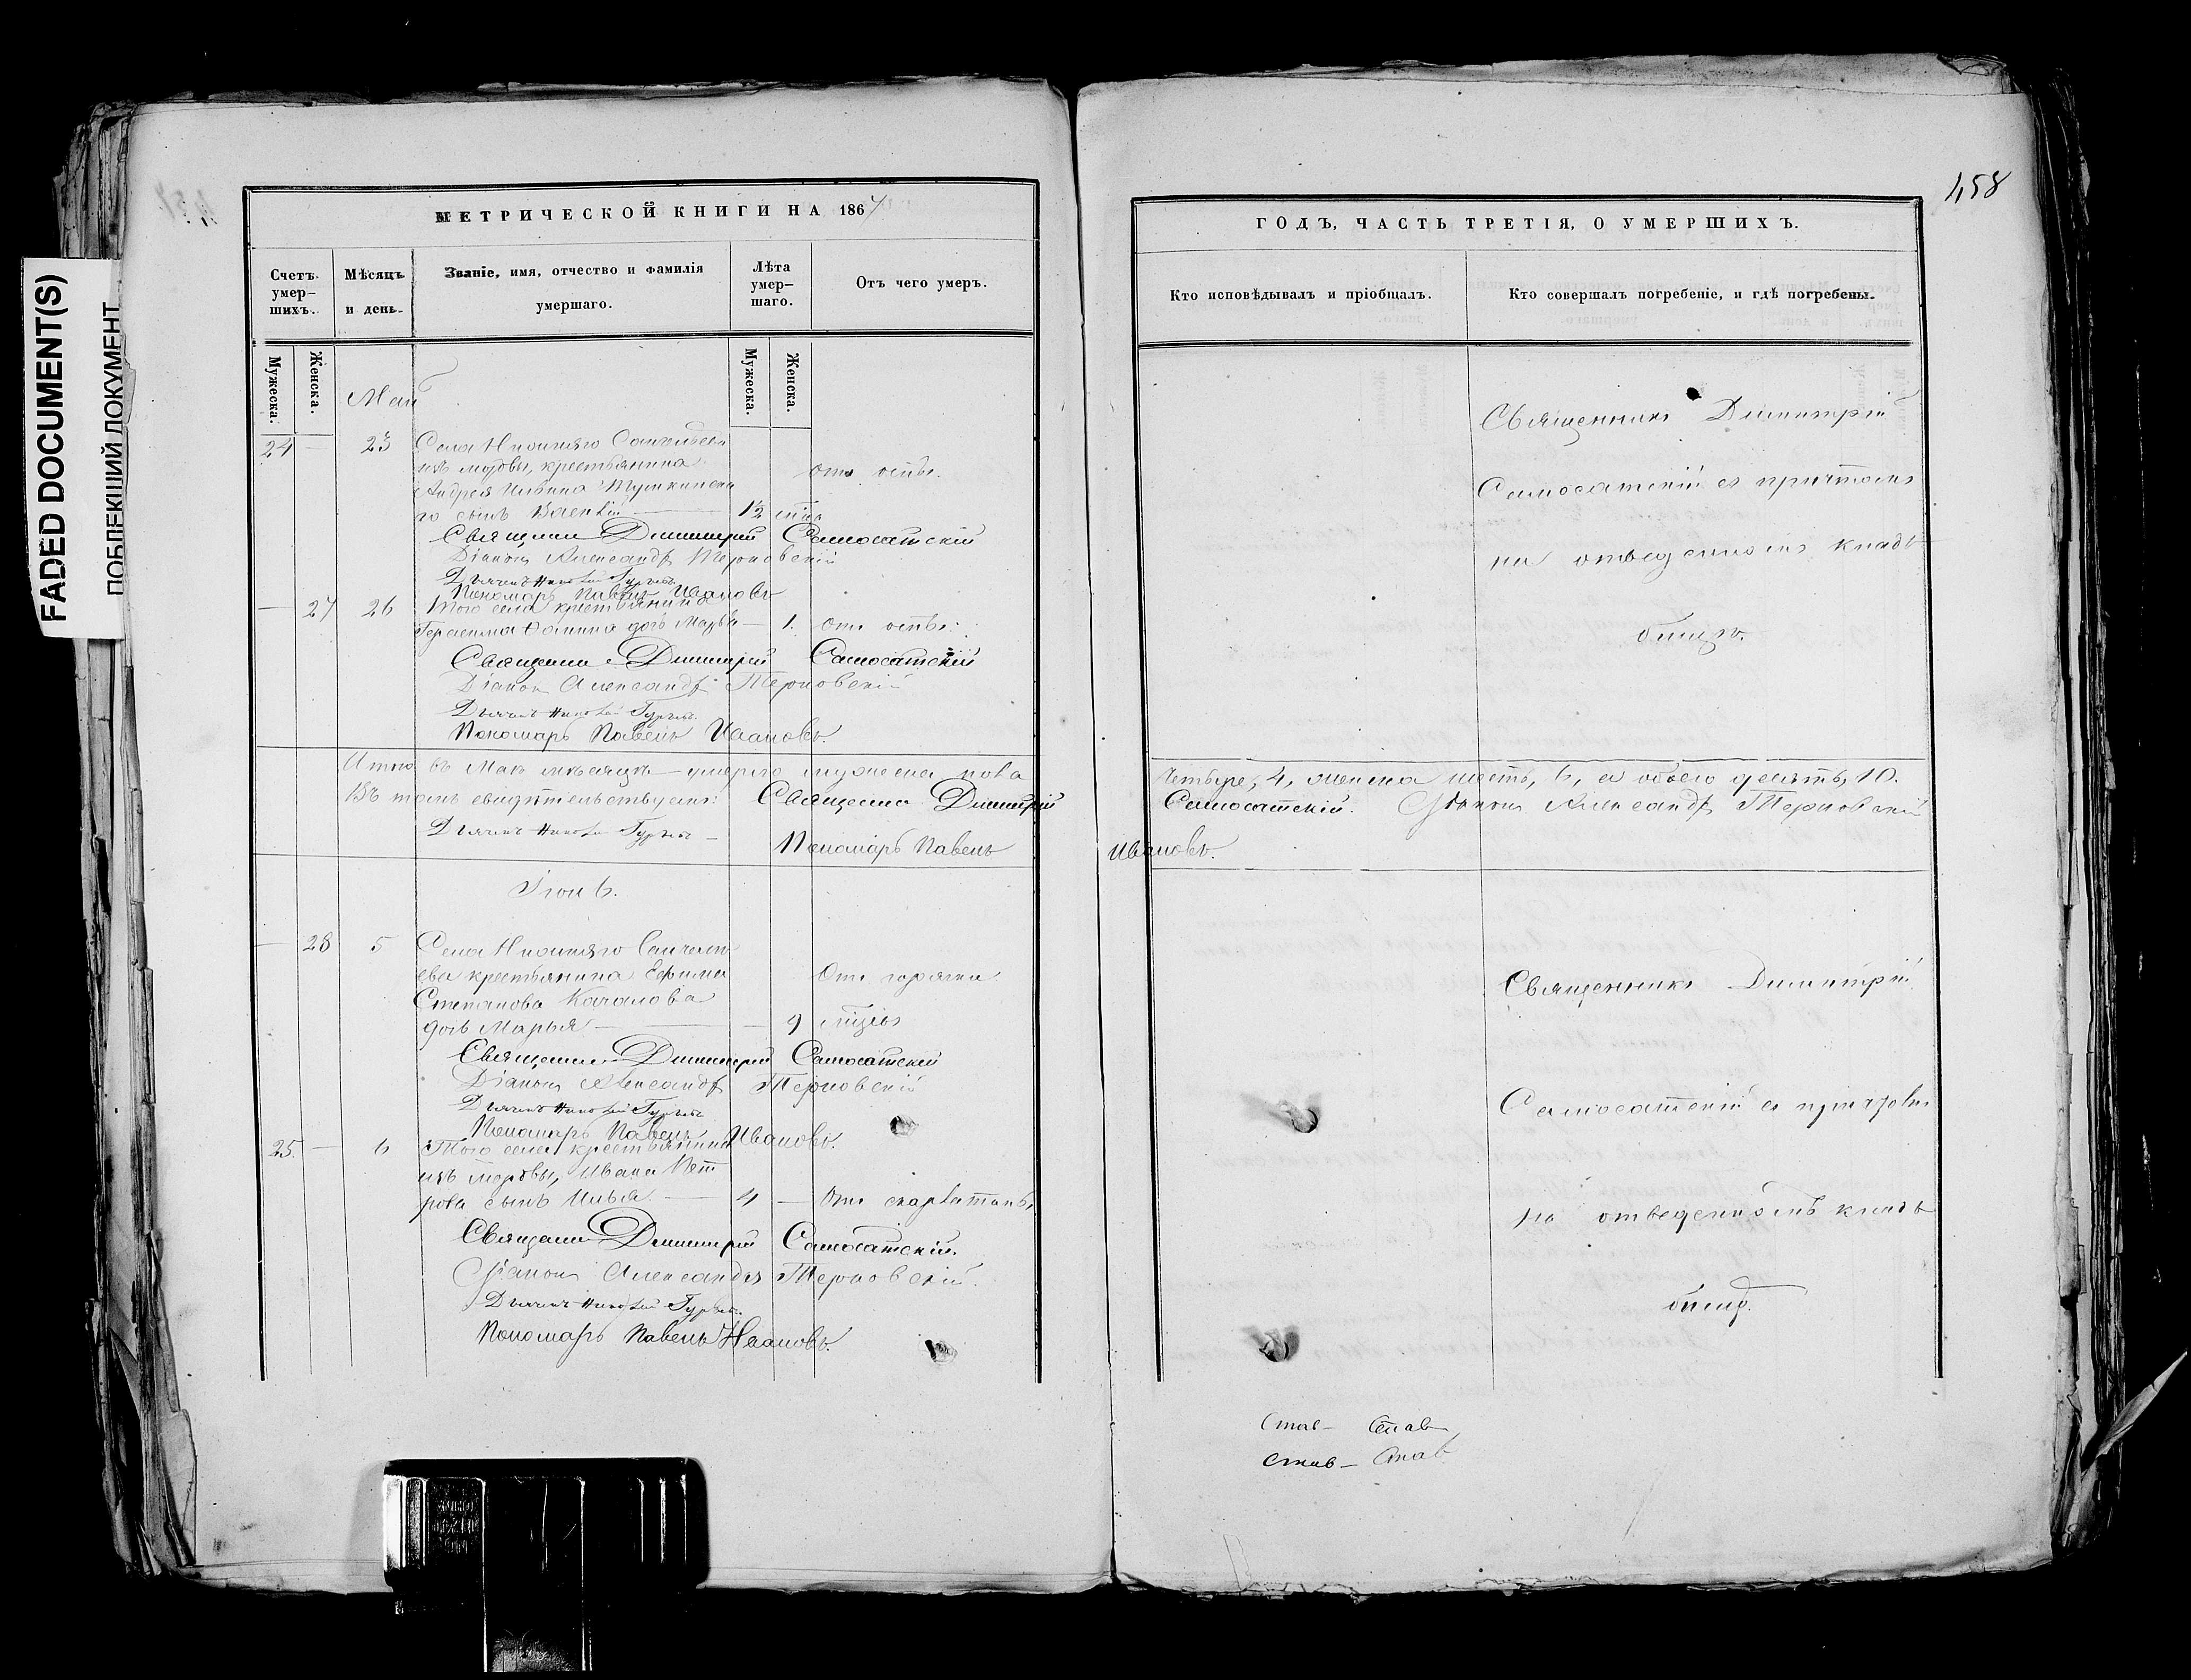 FADED DOCUMENT(S)
ПОБЛЕКШИЙ ДОКУМЕНТ
МЕТРИЧЕСКОЙ КНИГИ НА 186
Счетъ умер-шихъ.
Мѣсяцъ и день.
Званіе, имя, отчество и фамилія умершаго.
Лѣта умер-шаго.
Отъ чего умеръ.
Мужеска.
Женска.
Мужеска.
Женска.
Май
24 — 23 Села
изъ мордвы, крестьянина
Андрея
го сынъ 1½
отъ оспы.
Священникъ Димитрий Самосатскій
Діаконъ Александръ Терновскій
Дьячекъ Николай Гурьевъ
Пономарь Павелъ Ивановъ
— 27 26 Того села крестьянина
Герасима дочь Марья — 1. Отъ оспы.
Священникъ Димитрий Самосатскій
Діаконъ Александръ Терновскій
Дьячекъ Николай Гурьевъ
Пономарь Павелъ Ивановъ.
Итого въ Маѣ мѣсяцѣ умерло мужеска пола
Въ томъ свидѣтельствуемъ: Священникъ Димитрий
Дьячекъ Николай Гурьевъ —
Пономарь Павелъ
Іюнь.
— 28 5 Села
ева крестьянина Ефима
Степанова Качалова
дочь Марья — 9
Отъ горячки
Священникъ Димитрий Самосатскій
Діаконъ Александръ Терновскій
Дьячекъ Николай Гурьевъ
Пономарь Павелъ Ивановъ.
25. — 6 Того села крестьянина
изъ мордвы, Ивана Пет
рова сынъ Илья — 4 — Отъ скарлатины
Священникъ Димитрий Самосатскій.
Діаконъ Александръ Терновскій.
Дьячекъ Николай Гурьевъ.
Пономарь Павелъ Ивановъ.
458
ГОДЪ, ЧАСТЬ ТРЕТІЯ, О УМЕРШИХЪ.
Кто исповѣдывалъ и пріобщалъ.
Кто совершалъ погребеніе, и гдѣ погребены.
Священникъ Димитрій
Самосатскій съ причтомъ
на отведенномъ клад-
бищѣ.
четыре, 4, женска шесть, 6, а обоего десять, 10.
Самосатскій. Діаконъ Александръ Терновскій
Ивановъ.
Священникъ Димитрій
Самосатскій съ причтомъ
на отведенномъ клад
бищѣ.
Став — Став
Став — Став